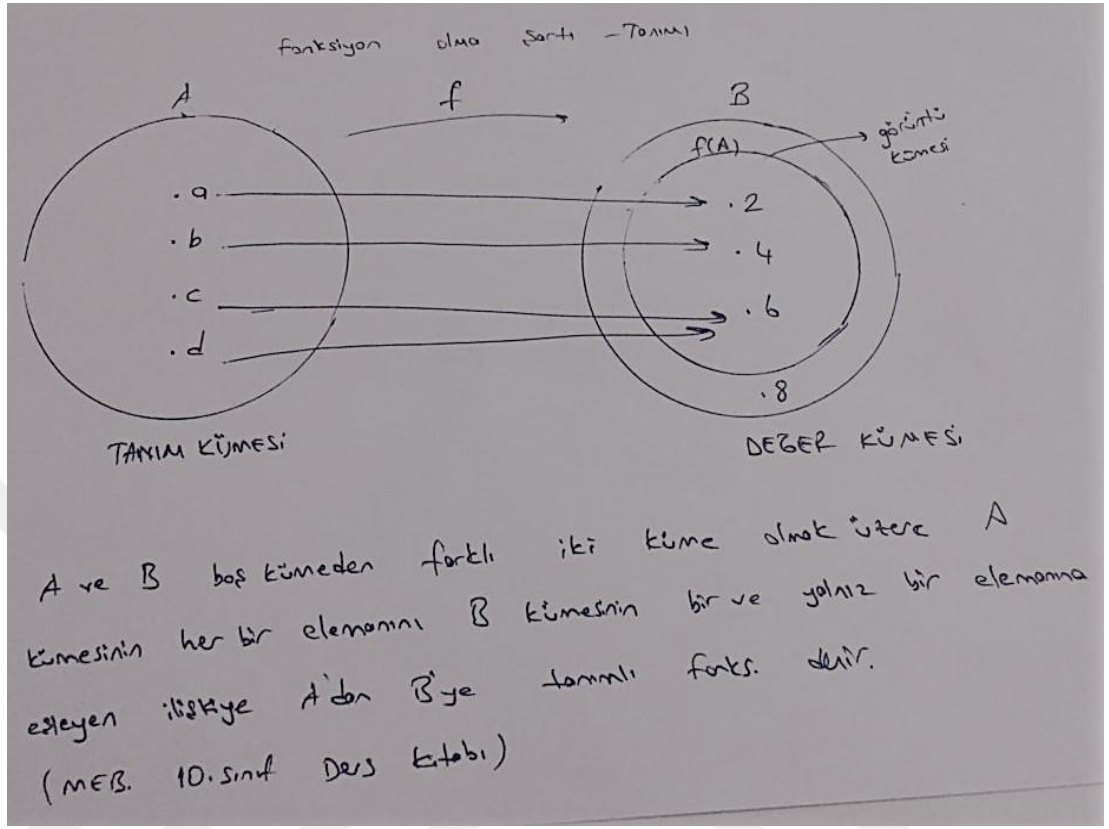 fonksiyon olma şartı - Tanımı
A f B
f(A) görüntü
kümesi
. a . 2
. b . 4
. c . 6
. d
. 8
TANIM KÜMESİ DEĞER KÜMESİ
A ve B boş kümeden farklı iki küme olmak üzere A
kümesinin her bir elemanını B kümesinin bir ve yalnız bir elemanına
eşleyen ilişkiye A'dan B'ye tanımlı fonks. denir.
(MEB. 10. sınıf Ders kitabı)